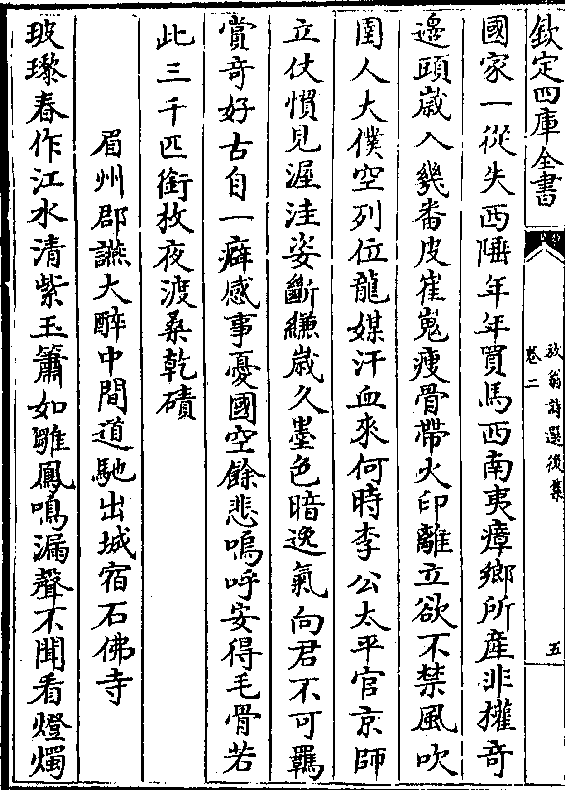 欽定四庫全書
放翁詩選後集
卷二
五
國家一從失西陲年年買馬西南夷瘴鄉所産非權奇
邊頭嵗入幾番皮崔嵬瘦骨帶火印離立欲不禁風吹
圉人大僕空列位龍媒汗血來何時李公太平官京師
立仗慣見渥洼姿斷縑嵗久墨色暗逸氣向君不可羈
賞竒好古自一癖感事憂國空餘悲嗚呼安得毛骨若
此三千匹銜枚夜渡桑乾磧
眉州郡讌大醉中間道馳出城宿石佛寺
玻瓈春作江水清紫玉簫如雛鳳鳴漏聲不聞看燈燭